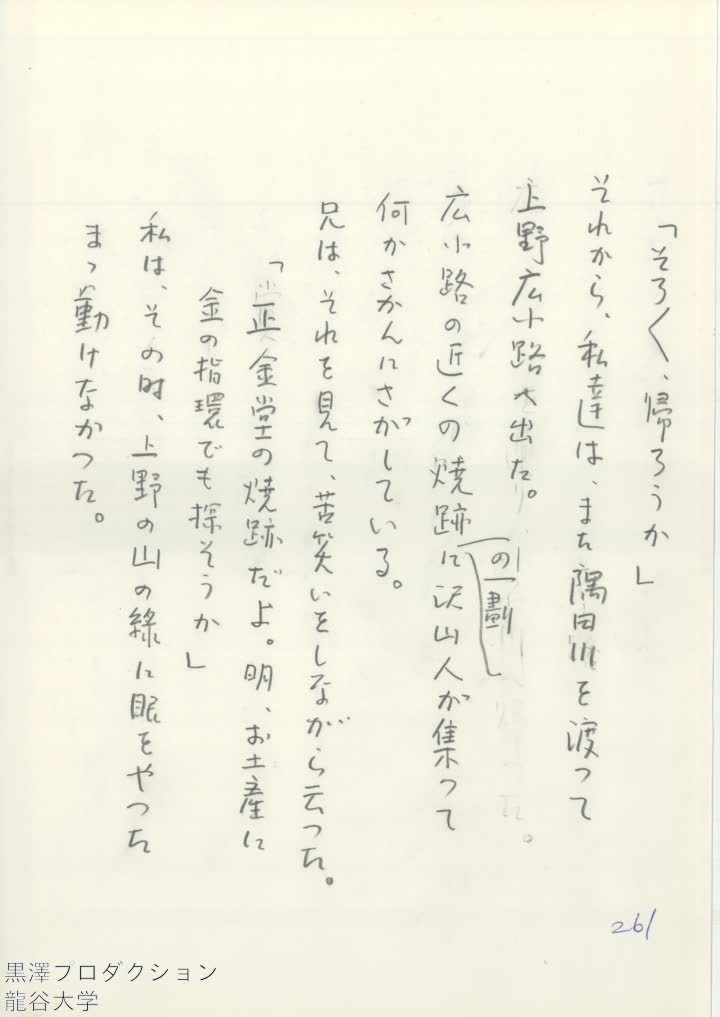 「そろ〱、帰ろうか」
それから、私達は、また隅田川を渡つて
上野広小路へ出た。
広小路の近くの焼跡の一劃に沢山人が集つて
何かさかんにさがしている。
兄は、それを見て、苦笑いをしながら云つた。
「正金堂の焼跡だよ。明、お土産に
金の指環でも探そうか」
私は、その時、上野の山の緑に眼をやつた
まゝ動けなかつた。
261
黒澤プロダクション
龍谷大学